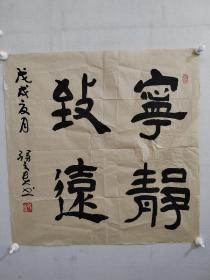 寧靜
致遠
戊戌夏月